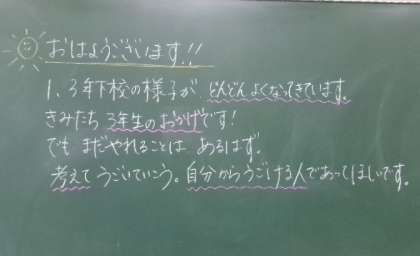 おはようございます!!
1、3年下校の様子が どんどん よくなってきています。
きみたち 3年生のおかげです!
でも まだやれることは あるはず。
考えて うごいていこう。自分からうごける人であってほしいです。